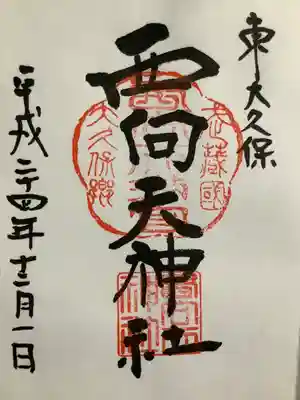 東大久保
西向天神社
平成二十四年十二月一日
武蔵國
大久保郷